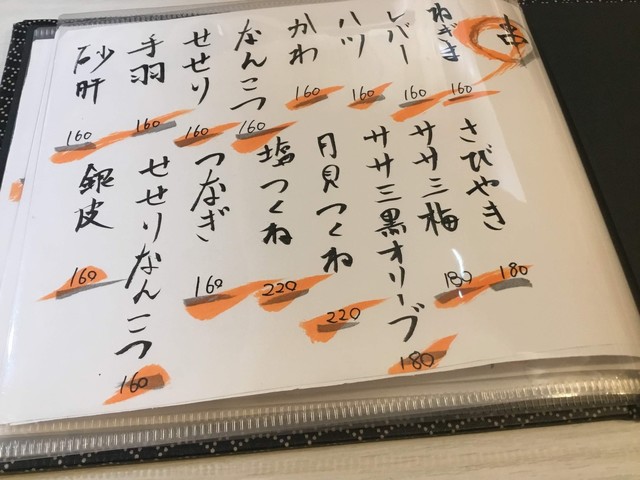 串
ねぎま
160
レバー
160
ハツ
160
かわ
160
なんこつ
160
せせり
160
手羽
160
砂肝
160
さびやき
180
ササミ梅
180
ササミ黒オリーブ
180
月見つくね
220
塩つくね
220
つなぎ
160
せせりなんこつ
160
銀皮
160